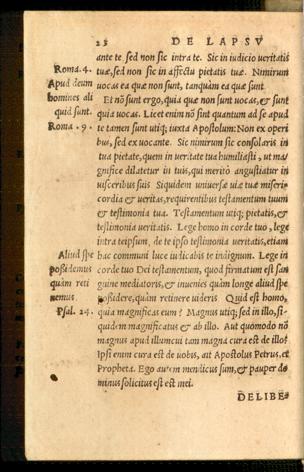 23 DE LAPSV
ante te, sed non sic intra te. Sic in iudicio ueritatis
Roma. 4. tuæ, sed non sic in affectu pietatis tuæ. Nimirum
Apud deum uocas ea quæ non sunt, tanquàm ea quæ sunt.
homines ali Et nõ sunt ergo, quia quæ non sunt uocas, & sunt
quid sunt. quia uocas. Licet enim nõ sint quantum ad se apud
Roma. 9. te tamen sunt utiq; iuxta Apostolum: Non ex operi
bus, sed ex uocante. Sic nimirum sic consolaris in
tua pietate, quem in ueritate tua humiliasti, ut ma
gnifice dilatetur in tuis, qui meritò angustiatur in
uisceribus suis. Siquidem uniuersæ uiæ tuæ miseri-
cordia & ueritas, requirentibus testamentum tuum
& testimonia tua. Testamentum utiq; pietatis, &
testimonia ueritatis. Lege homo in corde tuo, lege
intra teipsum, de te ipso testimonia ueritatis, etiam
Aliud spe hac communi luce iudicabis te indignum. Lege in
possidemus corde tuo Dei testamentum, quod firmatum est san
quàm reti guine mediatoris, & inuenies quàm longe aliud spe
nemus. possidere, quàm retinere uideris. Quid est homo,
Psal. 24. quia magnificas eum? Magnus utiq; sed in illo, si-
quidem magnificatus & ab illo. Aut quomodo nõ
magnus apud illum cui tam magna cura est de illo?
Ipsi enim cura est de uobis, ait Apostolus Petrus, et
Propheta. Ego autem mendicus sum, & pauper do
minus solicitus est mei.
DELIBE=